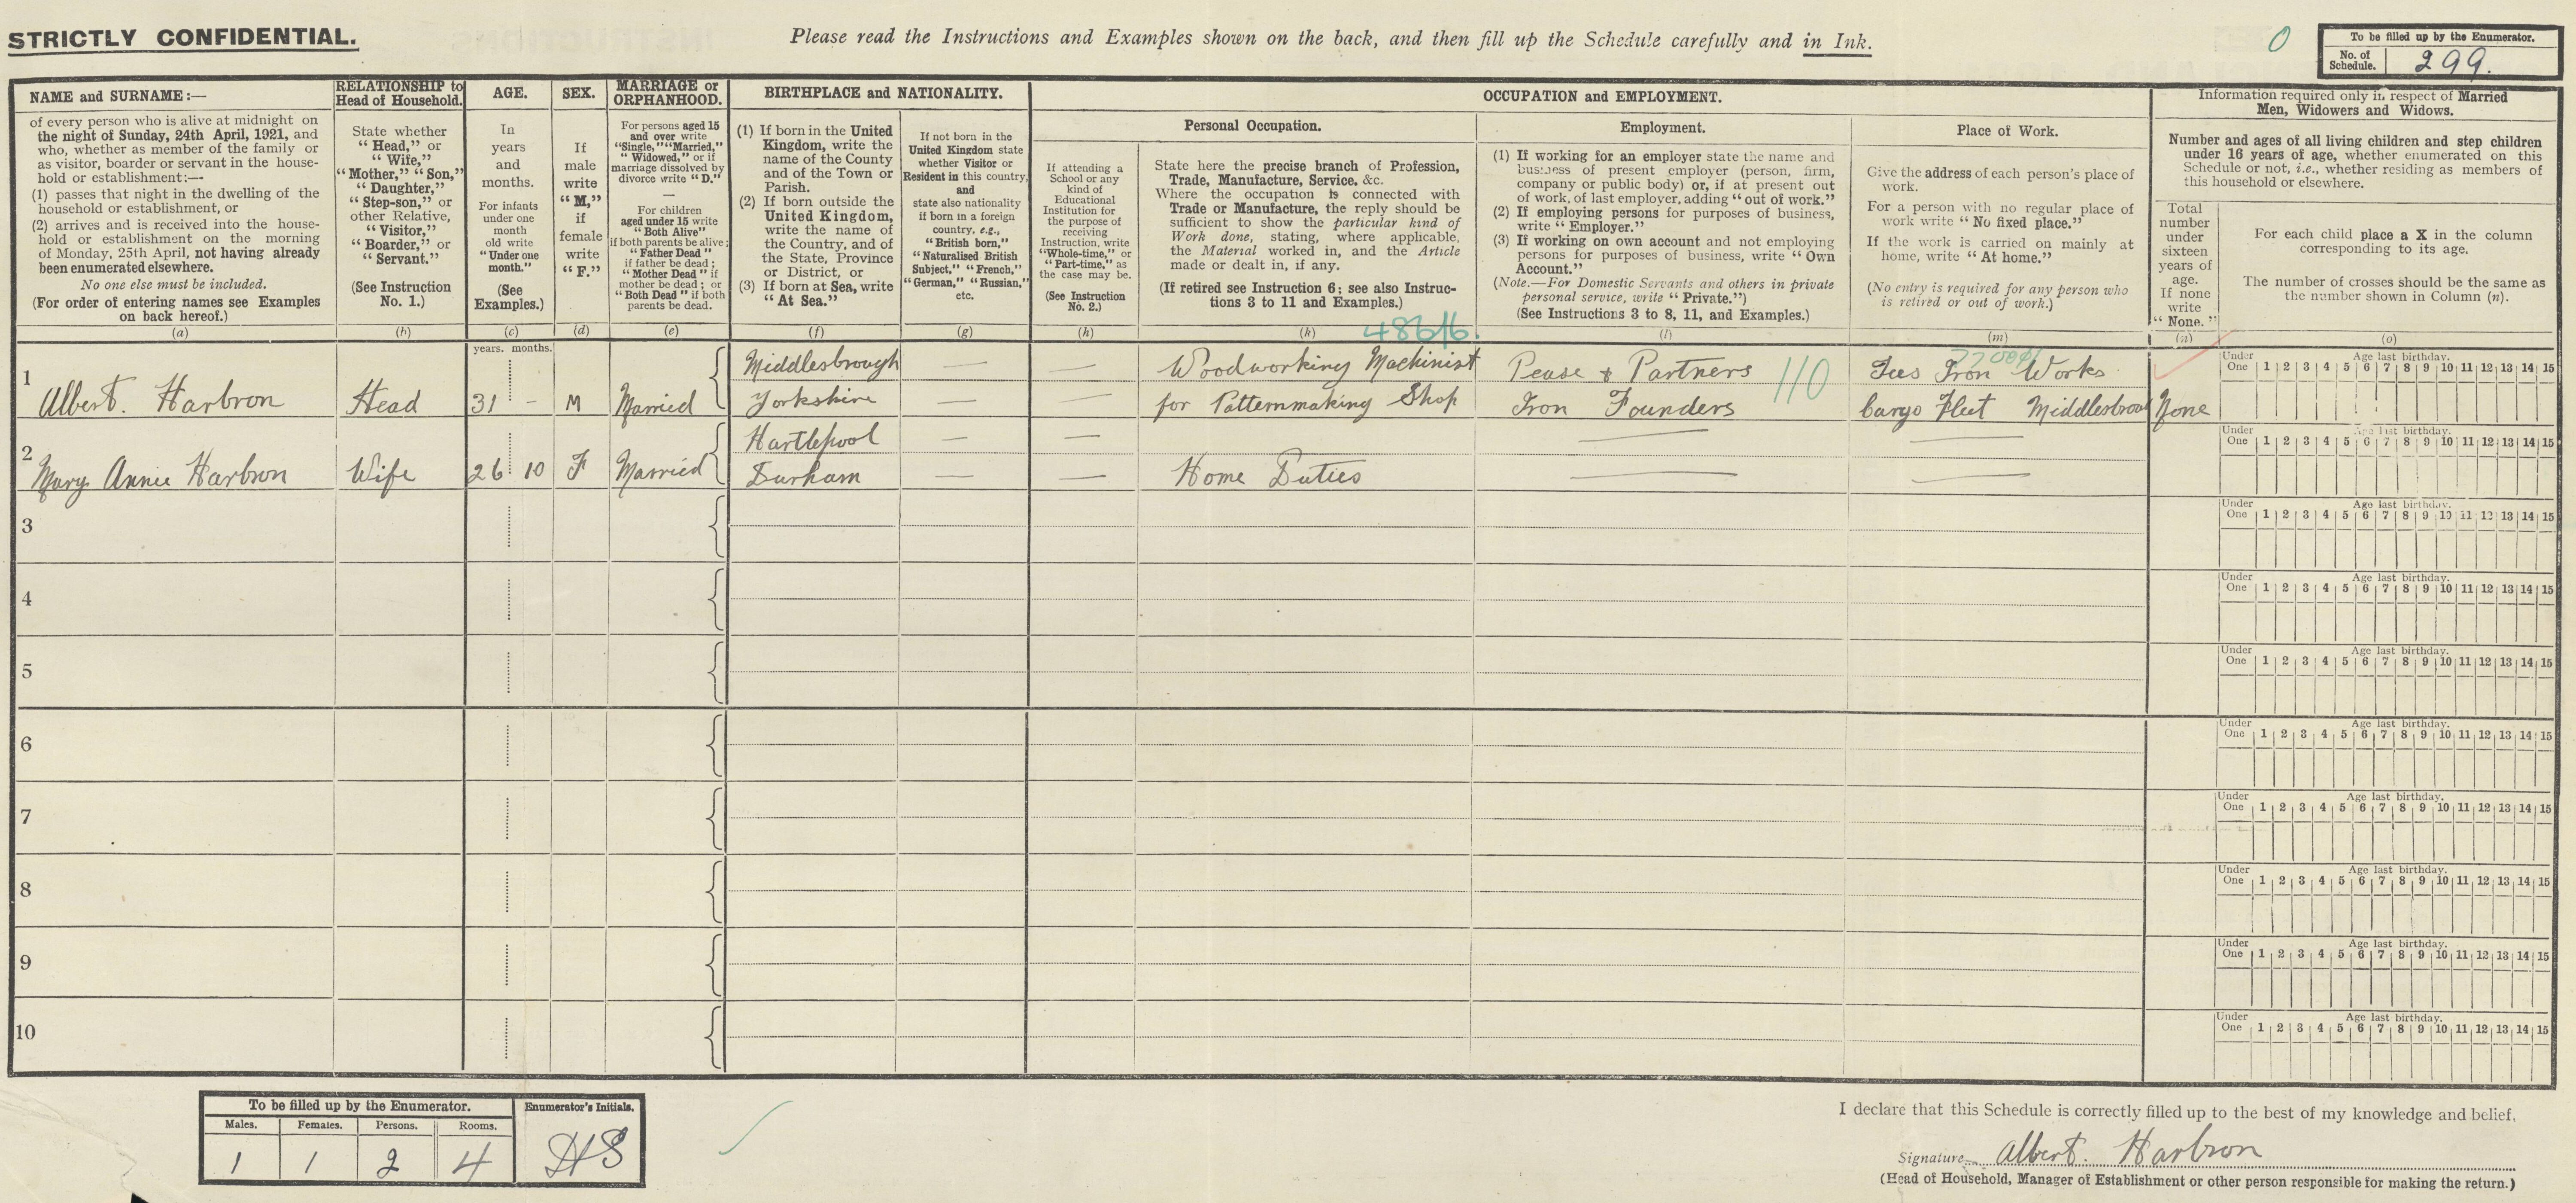 STRICTLY CONFIDENTIAL.
Please read the Instructions and Examples shown on the back, and then fill up the Schedule carefully and in Ink.
0
To be filled up by the Enumerator.
No. of Schedule. 299.
NAME and SURNAME:—
of every person who is alive at midnight on
the night of Sunday, 24th April, 1921, and
who, whether as member of the family or
as visitor, boarder or servant in the house-
hold or establishment:—
(1) passes that night in the dwelling of the
household or establishment, or
(2) arrives and is received into the house-
hold or establishment on the morning
of Monday, 25th April, not having already
been enumerated elsewhere.
No one else must be included.
(For order of entering names see Examples
on back hereof.)
(a)
RELATIONSHIP to
Head of Household.
State whether
"Head," or
"Wife,"
"Mother," "Son,"
"Daughter,"
"Step-son," or
other Relative,
"Visitor,"
"Boarder," or
"Servant."
(See Instruction
No. 1.)
(b)
AGE.
In
years
and
months.
For infants
under one
month
old write
"Under one
month."
(See
Examples.)
(c)
SEX.
If
male
write
"M,"
if
female
write
"F."
(d)
MARRIAGE or
ORPHANHOOD.
For persons aged 15
and over write
"Single," "Married,"
"Widowed," or if
marriage dissolved by
divorce write "D."
—
For children
aged under 15 write
"Both Alive"
if both parents be alive;
"Father Dead"
if father be dead;
"Mother Dead" if
mother be dead; or
"Both Dead" if both
parents be dead.
(e)
BIRTHPLACE and NATIONALITY.
(1) If born in the United
Kingdom, write the
name of the County
and of the Town or
Parish.
(2) If born outside the
United Kingdom,
write the name of
the Country, and of
the State, Province
or District, or
(3) If born at Sea, write
"At Sea."
(f)
If not born in the
United Kingdom state
whether Visitor or
Resident in this country,
and
state also nationality
if born in a foreign
country, e.g.,
"British born,"
"Naturalised British
Subject," "French,"
"German," "Russian,"
etc.
(g)
OCCUPATION and EMPLOYMENT.
If attending a
School or any
kind of
Educational
Institution for
the purpose of
receiving
Instruction, write
"Whole-time," or
"Part-time," as
the case may be.
(See Instruction
No. 2.)
(h)
Personal Occupation.
State here the precise branch of Profession,
Trade, Manufacture, Service, &c.
Where the occupation is connected with
Trade or Manufacture, the reply should be
sufficient to show the particular kind of
Work done, stating, where applicable,
the Material worked in, and the Article
made or dealt in, if any.
(If retired see Instruction 6; see also Instruc-
tions 3 to 11 and Examples.)
(k)
Employment.
(1) If working for an employer state the name and
business of present employer (person, firm,
company or public body) or, if at present out
of work, of last employer, adding "out of work."
(2) If employing persons for purposes of business,
write "Employer."
(3) If working on own account and not employing
persons for purposes of business, write "Own
Account."
(Note.—For Domestic Servants and others in private
personal service, write "Private.")
(See Instructions 3 to 8, 11, and Examples.)
(l)
Place of Work.
Give the address of each person's place of
work.
For a person with no regular place of
work write "No fixed place."
If the work is carried on mainly at
home, write "At home."
(No entry is required for any person who
is retired or out of work.)
(m)
Information required only in respect of Married
Men, Widowers and Widows.
Number and ages of all living children and step children
under 16 years of age, whether enumerated on this
Schedule or not, i.e., whether residing as members of
this household or elsewhere.
Total
number
under
sixteen
years of
age.
If none
write
"None."
(n)
For each child place a X in the column
corresponding to its age.
The number of crosses should be the same as
the number shown in Column (n).
(o)
years. months.
1
Albert. Harbron
Head
31 -
M
Married
Middlesbrough
Yorkshire
— —
— —
Woodworking Machinist
for Patternmaking Shop
Pease & Partners
Iron Founders
110
Tees Iron Works
Cargo Fleet Middlesbrough
None
Under Age last birthday.
One 1 2 3 4 5 6 7 8 9 10 11 12 13 14 15
2
Mary Annie Harbron
Wife
26 10
F
Married
Hartlepool
Durham
— —
— —
Home Duties
Under Age last birthday.
One 1 2 3 4 5 6 7 8 9 10 11 12 13 14 15
3
Under Age last birthday.
One 1 2 3 4 5 6 7 8 9 10 11 12 13 14 15
4
Under Age last birthday.
One 1 2 3 4 5 6 7 8 9 10 11 12 13 14 15
5
Under Age last birthday.
One 1 2 3 4 5 6 7 8 9 10 11 12 13 14 15
6
Under Age last birthday.
One 1 2 3 4 5 6 7 8 9 10 11 12 13 14 15
7
Under Age last birthday.
One 1 2 3 4 5 6 7 8 9 10 11 12 13 14 15
8
Under Age last birthday.
One 1 2 3 4 5 6 7 8 9 10 11 12 13 14 15
9
Under Age last birthday.
One 1 2 3 4 5 6 7 8 9 10 11 12 13 14 15
10
Under Age last birthday.
One 1 2 3 4 5 6 7 8 9 10 11 12 13 14 15
To be filled up by the Enumerator.
Males. Females. Persons. Rooms.
1 1 2 4
Enumerator's Initials.
I declare that this Schedule is correctly filled up to the best of my knowledge and belief.
Signature Albert. Harbron
(Head of Household, Manager of Establishment or other person responsible for making the return.)